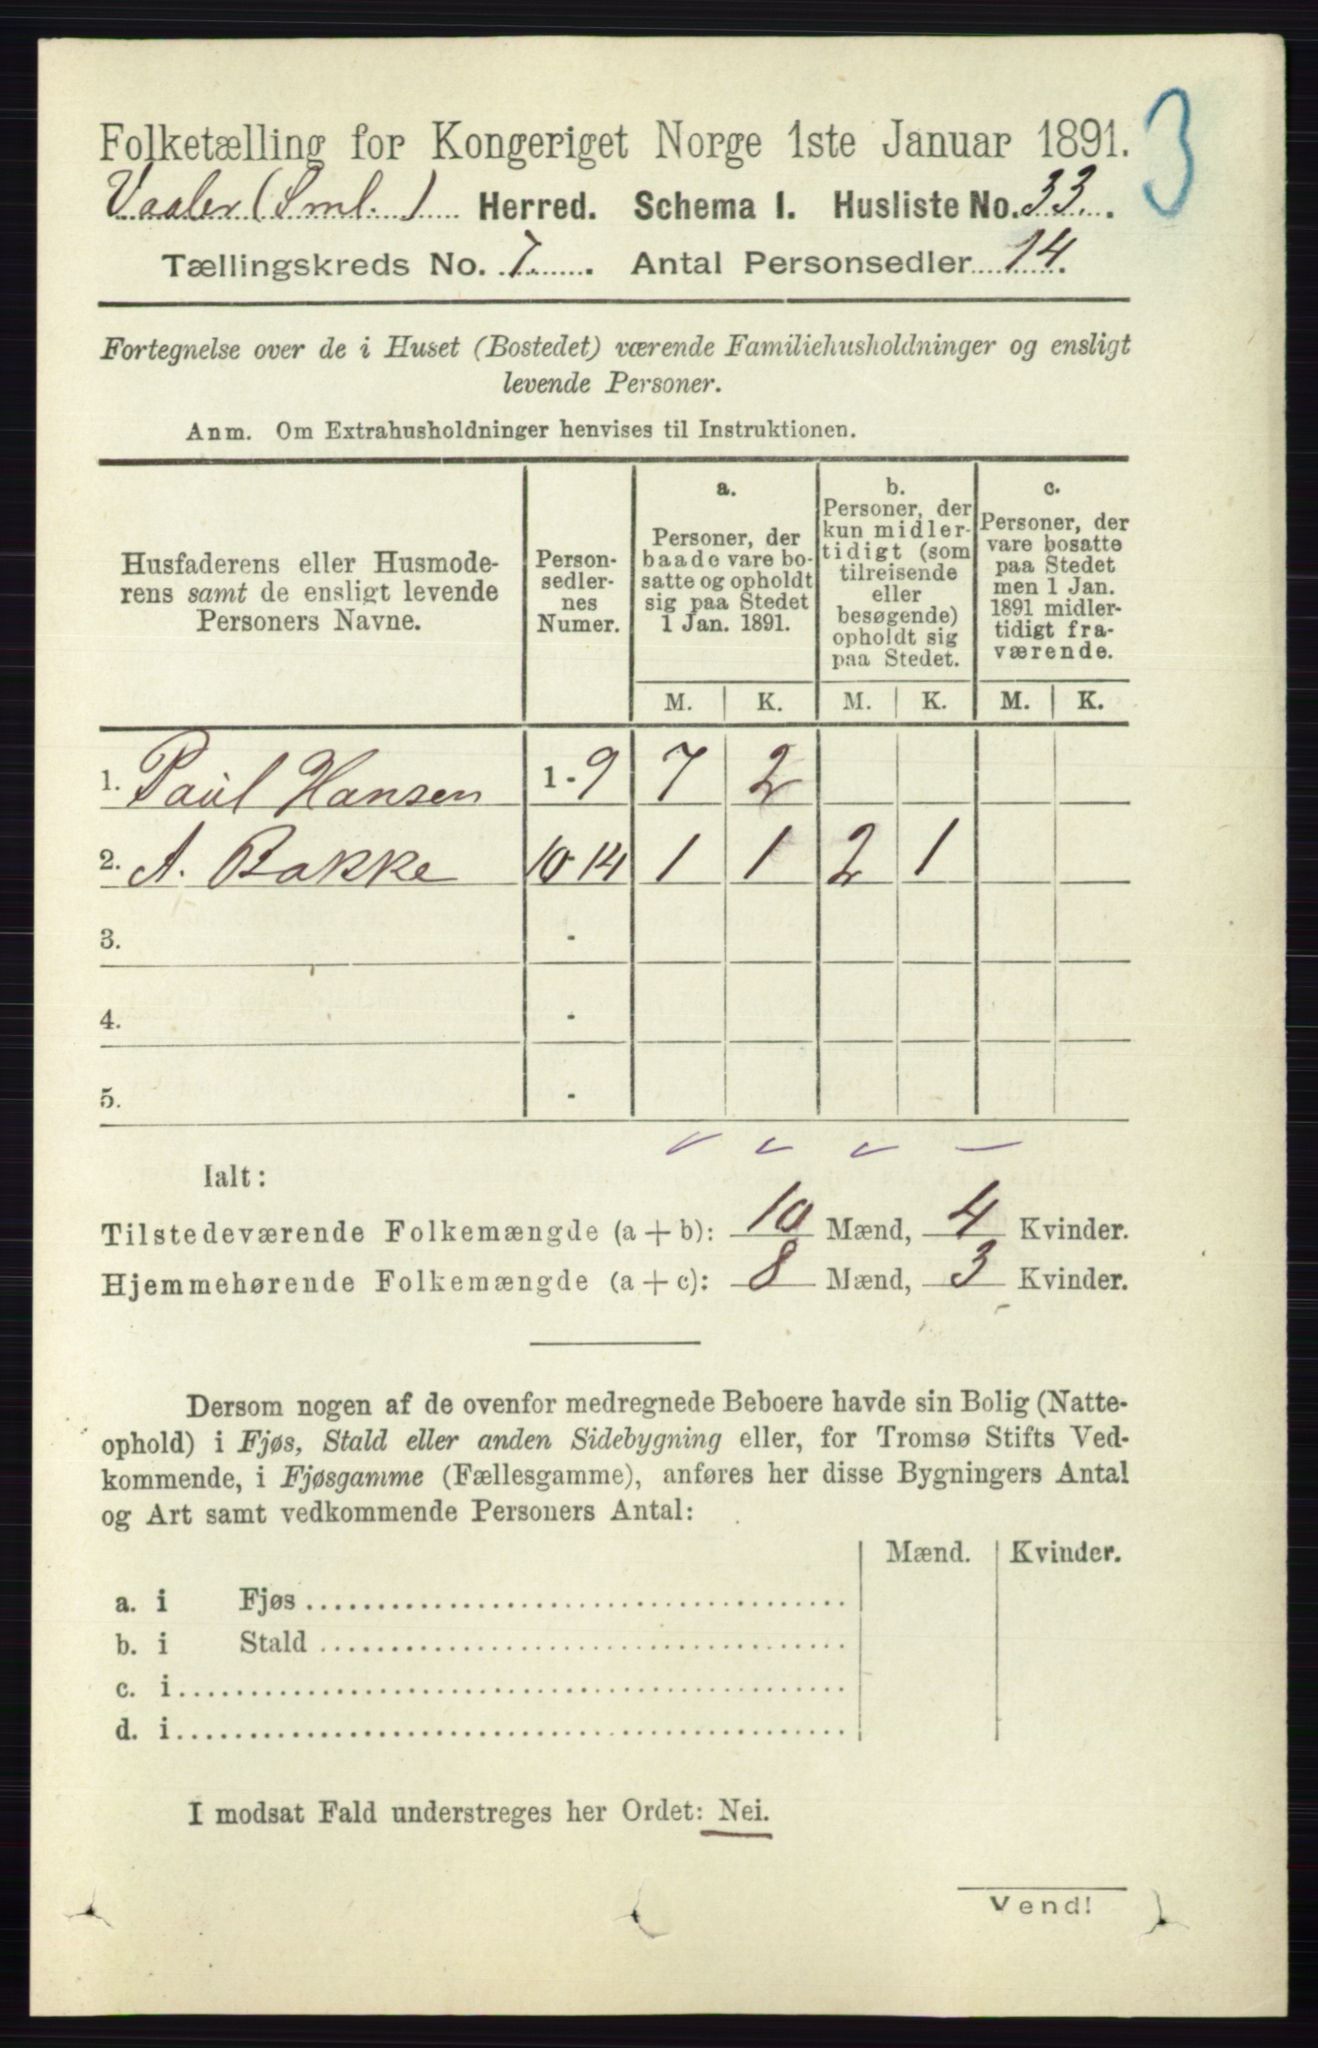 3
Folketælling for Kongeriget Norge 1ste Januar 1891.
Vaaler (Sml.) Herred. Schema 1. Husliste No. 33.
Tællingskreds No. 7. Antal Personsedler 14.
Fortegnelse over de i Huset (Bostedet) værende Familiehusholdninger og ensligt
levende Personer.
Anm. Om Extrahusholdninger henvises til Instruktionen.
Husfaderens eller Husmode-
rens samt de ensligt levende
Personers Navne.
Person-
sedler-
nes
Numer.
a.
Personer, der
baade vare bo-
satte og opholdt
sig paa Stedet
1 Jan. 1891.
b.
Personer, der
kun midler-
tidigt (som
tilreisende
eller
besøgende)
opholdt sig
paa Stedet.
c.
Personer, der
vare bosatte
paa Stedet
men 1 Jan.
1891 midler-
tidigt fra-
værende.
M. K. M. K. M. K.
1. Paul Hansen 1-9 7 2
2. A. Bakke 10-14 1 1 2 1
3. -
4. -
5. -
Ialt:
Tilstedeværende Folkemængde (a+b): 10 Mænd, 4 Kvinder.
Hjemmehørende Folkemængde (a+c): 8 Mænd, 3 Kvinder.
Dersom nogen af de ovenfor medregnede Beboere havde sin Bolig (Natte-
ophold) i Fjøs, Stald eller anden Sidebygning eller, for Tromsø Stifts Ved-
kommende, i Fjøsgamme (Fællesgamme), anføres her disse Bygningers Antal
og Art samt vedkommende Personers Antal:
Mænd. Kvinder.
a. i Fjøs
b. i Stald
c. i
d. i
I modsat Fald understreges her Ordet: Nei.
Vend!